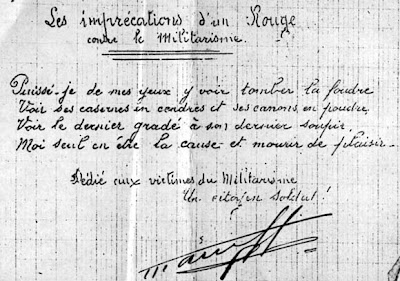 Les imprécations d'un Rouge
contre le Militarisme.
Puissé-je de mes yeux y voir tomber la foudre
Voir ses casernes in cendres et ses canons en poudre
Voir le dernier gradé à son dernier soupir,
Moi seul en être la cause et mourir de plaisir.
Dédié aux victimes du Militarisme
Un citoyen soldat!